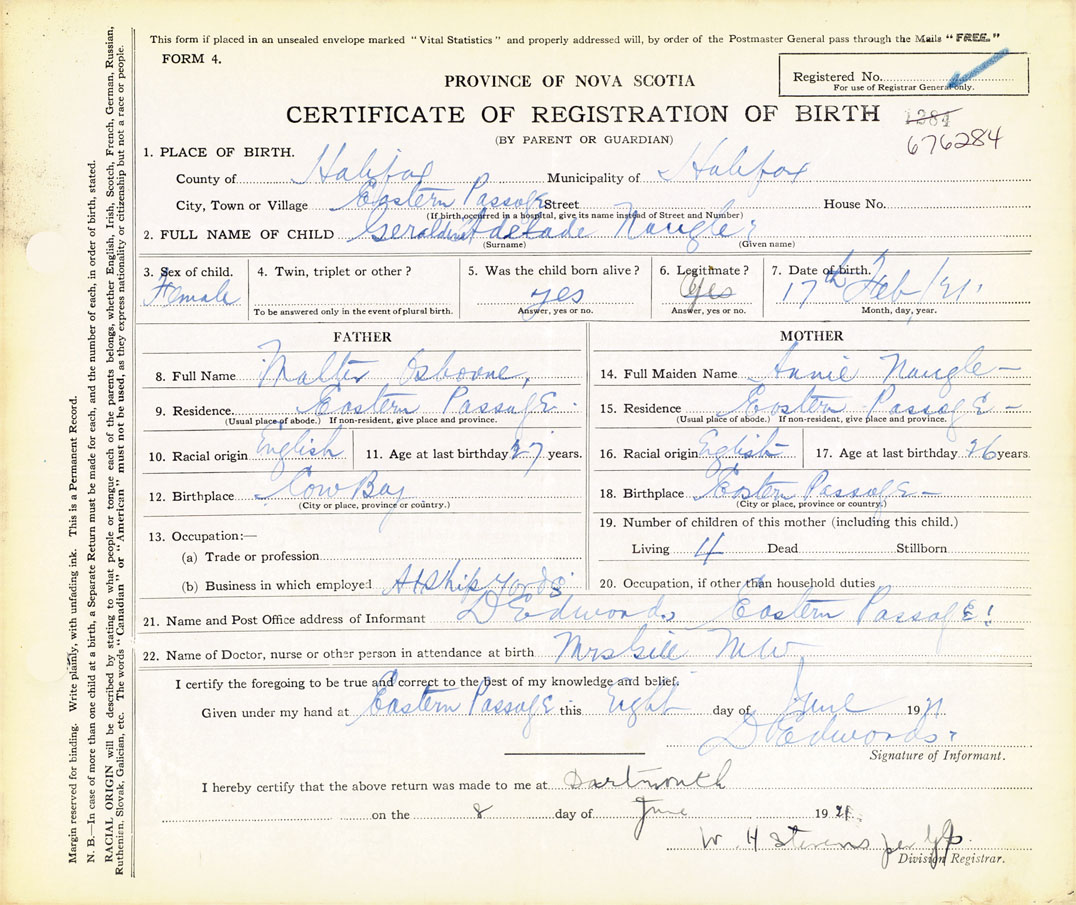 This form if placed in an unsealed envelope marked "Vital Statistics" and properly addressed will, by order of the Postmaster General pass through the Mails "FREE."
FORM 4.
PROVINCE OF NOVA SCOTIA
Registered No.
For use of Registrar General only.
CERTIFICATE OF REGISTRATION OF BIRTH
676284
(BY PARENT OR GUARDIAN)
1. PLACE OF BIRTH.
County of Halifax Municipality of Halifax
City, Town or Village Eastern Passage Street House No.
(If birth occurred in a hospital, give its name instead of Street and Number)
2. FULL NAME OF CHILD Geraldine Adelade Naugler
(Surname) (Given name)
3. Sex of child. Female
4. Twin, triplet or other?
To be answered only in the event of plural birth.
5. Was the child born alive? yes
Answer, yes or no.
6. Legitimate? Yes
Answer, yes or no.
7. Date of birth. 17th Feb/21.
Month, day, year.
FATHER
8. Full Name Walter Osborne,
9. Residence. Eastern Passage.
(Usual place of abode.) If non-resident, give place and province.
10. Racial origin English 11. Age at last birthday 27 years.
12. Birthplace Cow Bay
(City or place, province or country.)
13. Occupation:—
(a) Trade or profession
(b) Business in which employed At Ship Yards
MOTHER
14. Full Maiden Name Annie Naugle —
15. Residence Eastern Passage —
(Usual place of abode.) If non-resident, give place and province.
16. Racial origin English 17. Age at last birthday 26 years
18. Birthplace Eastern Passage —
(City or place, province or country.)
19. Number of children of this mother (including this child.)
Living 4 Dead Stillborn
20. Occupation, if other than household duties
21. Name and Post Office address of Informant D Edwards Eastern Passage!
22. Name of Doctor, nurse or other person in attendance at birth Mrs Gill MW
I certify the foregoing to be true and correct to the best of my knowledge and belief.
Given under my hand at Eastern Passage this Eight day of June 1921
D Edwards
Signature of Informant.
I hereby certify that the above return was made to me at Dartmouth
on the 8 day of June 1921.
W. H Stevens per
Division Registrar.
Margin reserved for binding. Write plainly, with unfading ink. This is a Permanent Record.
N. B.—In case of more than one child at a birth, a Separate Return must be made for each, and the number of each, in order of birth, stated.
RACIAL ORIGIN will be described by stating to what people or tongue each of the parents belongs, whether English, Irish, Scotch, French, German, Russian,
Ruthenian, Slovak, Galician, etc. The words "Canadian" or "American" must not be used, as they express nationality or citizenship but not a race or people.